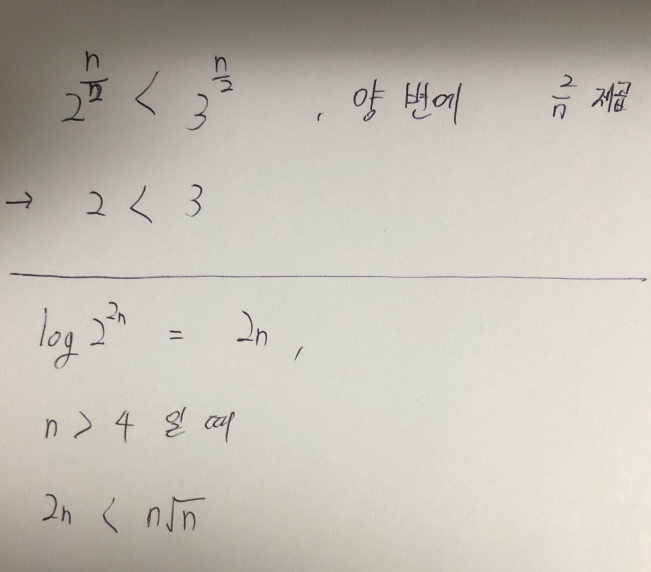 2^{n/2} < 3^{n/2} , 양 변에 2/n 제곱
→ 2 < 3
log 2^{2n} = 2n ,
n > 4 일 때
2n < n√n